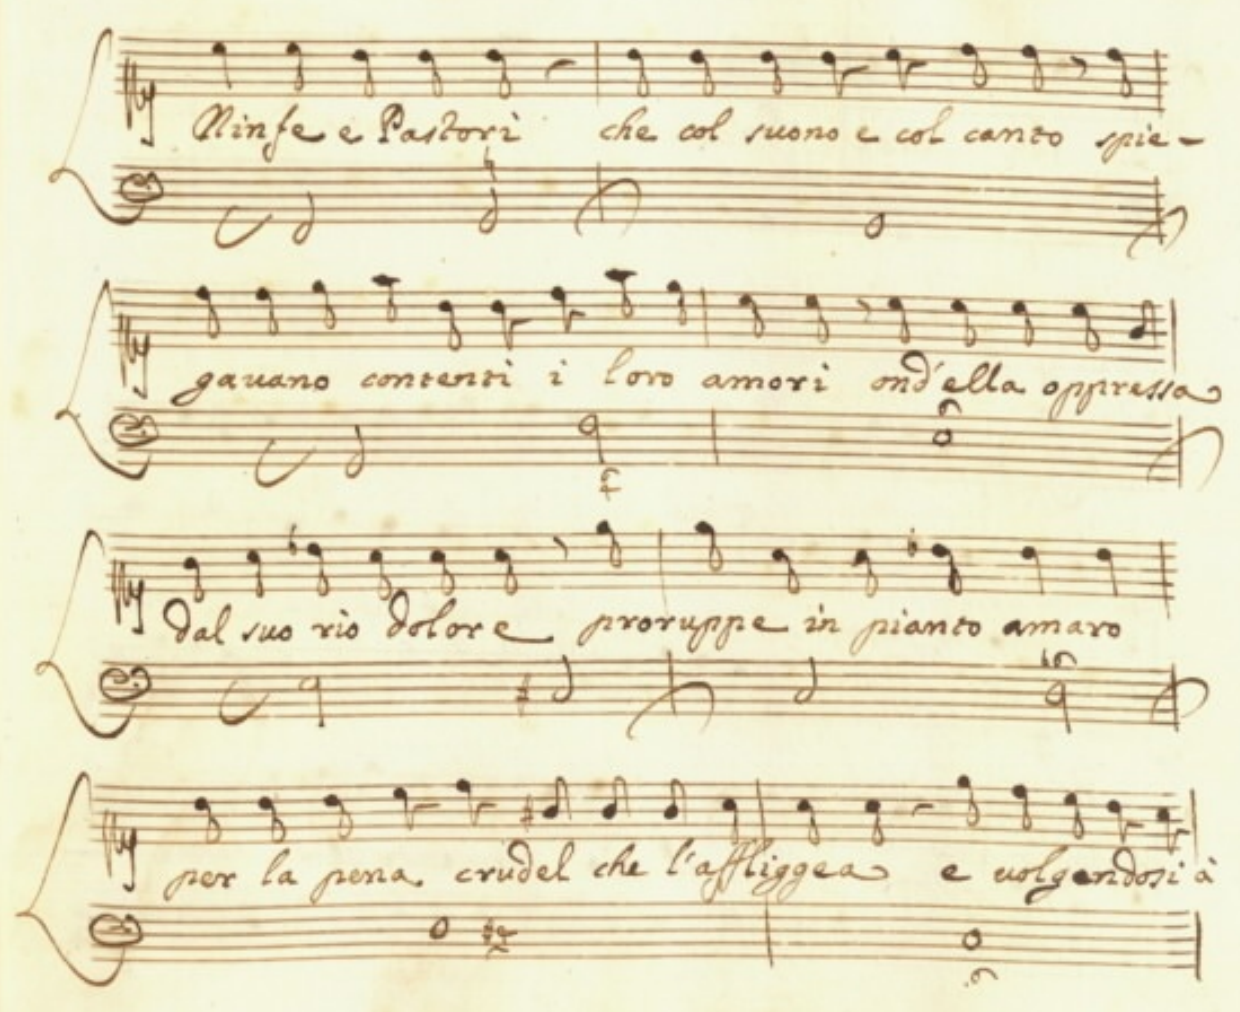 Ninfe e Pastori che col suono e col canto spie-
gavano contenti i loro amori ond'ella oppressa
dal suo rio dolore proruppe in pianto amaro
per la pena crudel che l'affliggea e volgendosi à